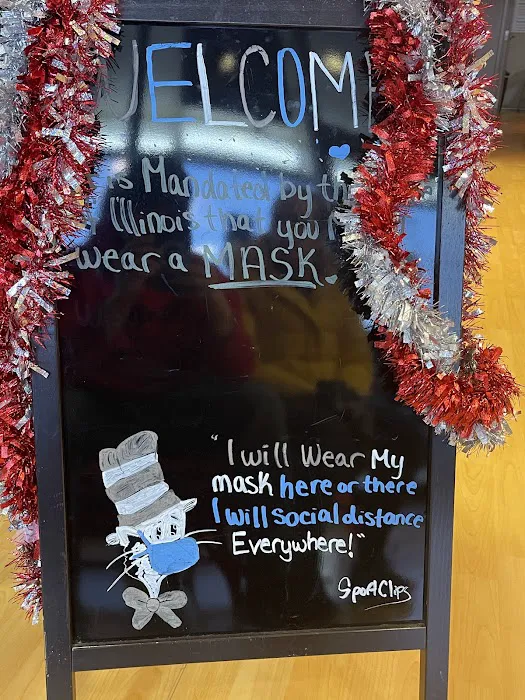 WELCOME
is Mandated by the
Illinois that you
wear a MASK.
"I will Wear My
mask here or there
I will social distance
Everywhere!"
Sport Clips